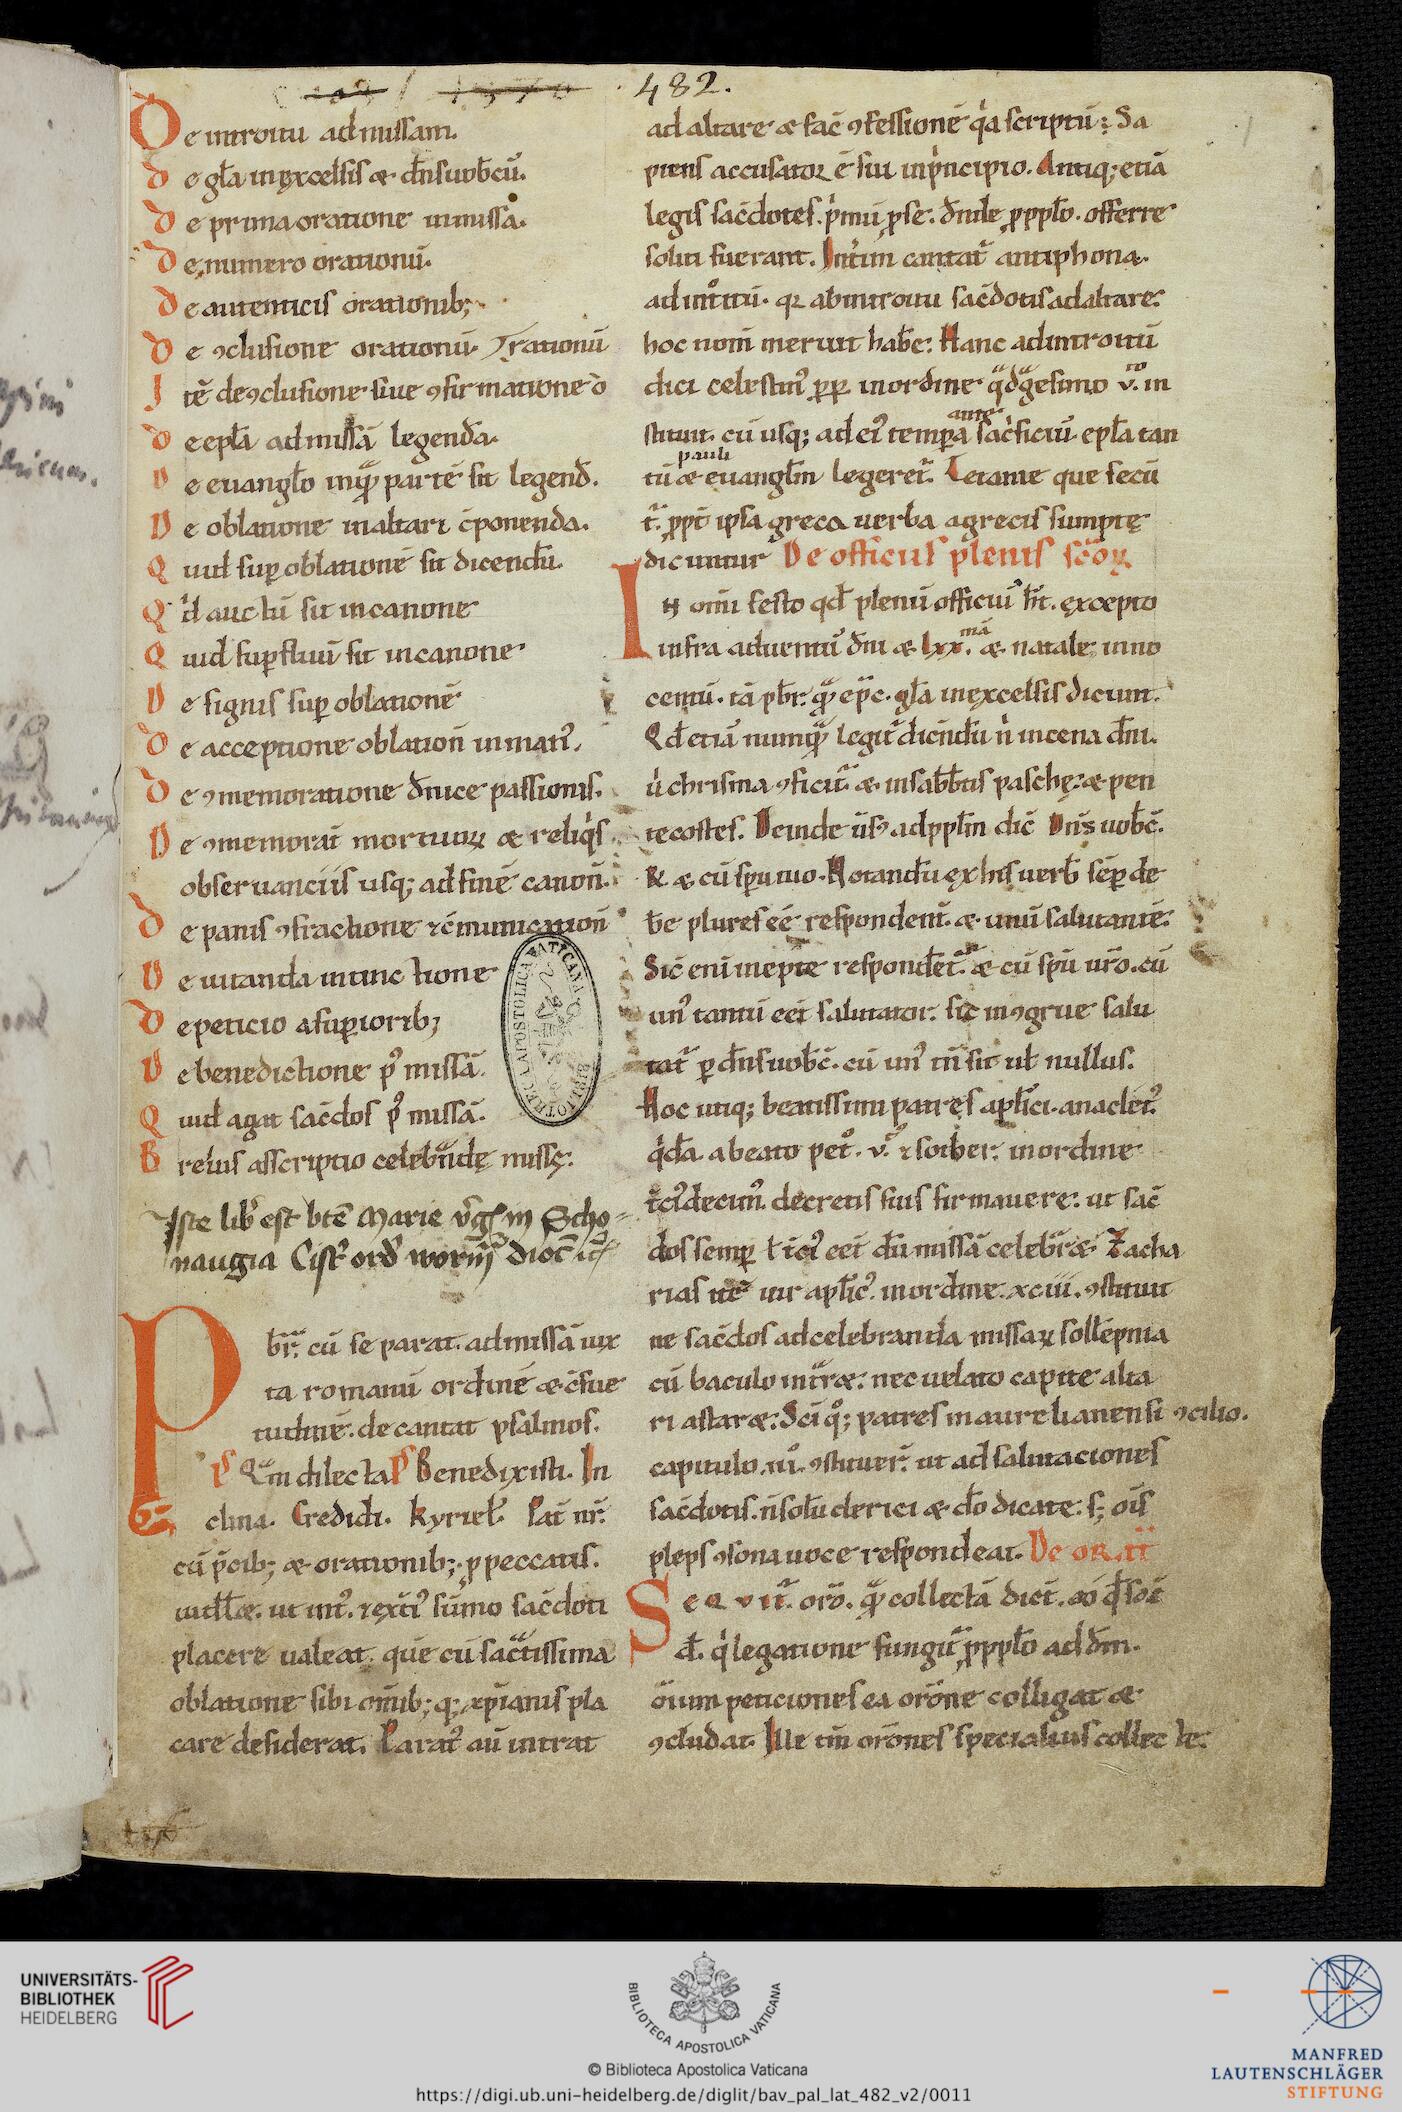 482.
De introitu ad missam.
de gła in excelsis & dn̄s uob̄cū.
de prima oratione in missa.
de numero orationū.
de autenticis orationib;
de ɔclusione orationū.
Itē de ɔclusione siue ɔfirmatione orationū
de epła ad missā legenda.
De euangło in quā partē sit legend̄.
De oblatione in altari c̄ponenda.
Quid sup oblationē sit dicendū.
Qd̄ auctū sit in canone
Quid sup fluū sit in canone
De signis sup oblationē
de acceptione oblation̄ in man᷒.
de ɔmemoratione dn̄ice passionis.
De ɔmemorat̄ mortuoꝝ & reliq̇s
obseruanciis usq; ad finē canon̄.
de panis ɔfractione ⁊ c̄municatiōn
De uitanda intinctione
de peticio a superiorib;
De benedictione p᷒ missā.
Quid agat sac̄dos p᷒ missā.
Breuis asscriptio celebrandę missę.
Iste lib̄ est bt̄e Marie v̄ḡ in Scho-
naugia Cist᷒ ord̄ worm̄ dioc̄
Pbr̄ cū se parat ad missā iux
ta romanū ordinē & c̄sue
tudinē. decantat psalmos.
Ps Quā dilecta Ps Benedixisti. In
clina. Credidi. Kyriel᷒. Pat̄ nr̄.
cū p̄cib; & orationib; ꝓ peccatis.
ut int᷒. ⁊ ext᷒i᷒ sūmo sac̄doti
placere ualeat. que cū sac̄tissima
oblatione sibi om̄ib; q; xp̄ianis pla
care desiderat. Parat᷒ aū intrat
ad altare & fac̄ ɔfessionē q̇a scriptū: Sa
piens accusator ē sui in ṗncipio. Antiq; etiā
legis sac̄dotes. ṗmū ꝓ se. d̄inde ꝓ ppło. offerre
soliti fuerant. Int̄im cantat᷑ antiphona
ad int᷒itū. q̄ ab introitu sac̄dotis ad altare:
hoc nom̄ meruit hab̄e: Hanc ad introitū
dici celestin᷒ p̄p̄ in ordine q̄d̄gesimo v.to in
stituit. cū usq; ad ei᷒ tempa ante sac̄ficiū epła tan
tū pauli & euangłm legeret᷑. Letanie que secū
t᷑. ꝓpt̄ ipsa greca uerba a grecis sumptę
dicuntur De officiis plenis sc̄oꝝ
IN om̄i festo qd̄ plenū officiū h̄t. excepto
infra aduentū dn̄i & lxx.mā & natale inno
centū. tā pb̄r quā ep̄c. gła in excelsis dicunt.
Qd̄ etiā numquā legit᷑ dicend̄ū n̄ in cena dn̄i.
ů chrisma ɔficit᷑ & in sab̄b̄tis paschę: & pen
tecostes. Deinde ūs᷒ ad ppłm dic̄ Dn̄s uob̄c.
R̄ & cū sp̄u tuo. Notand̄ū ex his uerb̄ sēp de
b̄e plures eē respondent̄. & unū salutantē.
Sic eni inepte respond̄et᷑ & cū sp̄u ur̄o. cū
un᷒ tantū eēt salutator. sic inɔgrue salu
tat᷑ ꝑ dn̄s uob̄c. cū un᷒ tn̄ sit uł nullus.
Hoc utiq; beatissimi patres apłici. anaclet᷒.
q̇d̄a a beato pet᷒. v. ⁊ sother. in ordine
t̄ci᷒decim᷒. decretis suis firmauere: ut sac̄
dos semp ł t̄ci᷒ eēt dū missā celebr̄&. Zacha
rias itē uir apłic᷒. in ordine. xciii. ɔstituit
ne sac̄dos ad celebranda missaꝝ sollēpnia
cū baculo int̄r&: nec uelato capite alta
ri astar&: Sc̄i q̊; patres in aurelianensi ɔcilio.
capitulo. iii. ɔstituer᷑. ut ad salutaciones
sac̄dotis. n̄ solū clerici & dō dicate: s; om̄s
pleps ɔsona uoce respondeat. De or.
SEQVIT᷑. orō. quā collectā dict.
q̇ legatione fungit᷑ ꝓ ppło ad dm̄.
ōium peticiones ea orōne colligat &
ɔcludat. Ille tn̄ orōnes specialius collecte:
UNIVERSITÄTS-
BIBLIOTHEK
HEIDELBERG
BIBLIOTECA APOSTOLICA VATICANA
© Biblioteca Apostolica Vaticana
https://digi.ub.uni-heidelberg.de/diglit/bav_pal_lat_482_v2/0011
MANFRED
LAUTENSCHLÄGER
STIFTUNG